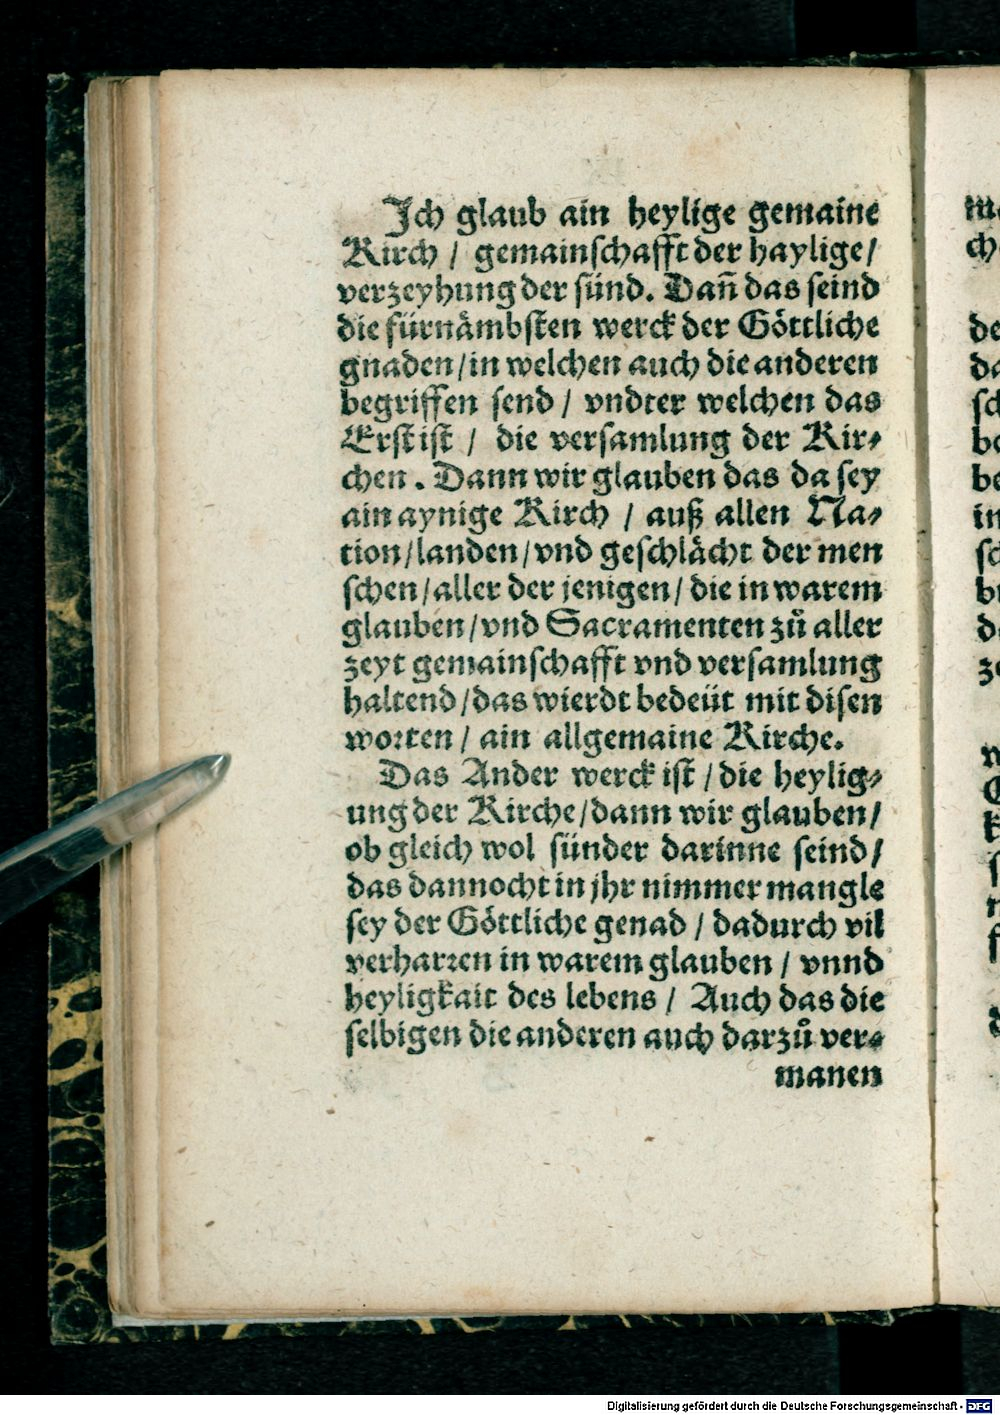 Ich glaub ain heylige gemaine
Kirch / gemainschafft der haylige /
verzeyhung der sünd. Dañ das seind
die fürnämbsten werck der Göttliche
gnaden / in welchen auch die anderen
begriffen send / vndter welchen das
Erst ist / die versamlung der Kir⸗
chen. Dann wir glauben das da sey
ain aynige Kirch / auß allen Na⸗
tion / landen / vnd geschlächt der men
schen / aller der jenigen / die in warem
glauben / vnd Sacramenten zů aller
zeyt gemainschafft vnd versamlung
haltend / das wierdt bedeüt mit disen
worten / ain allgemaine Kirche.
Das Ander werck ist / die heylig⸗
ung der Kirche / dann wir glauben /
ob gleich wol sünder darinne seind /
das dannocht in jhr nimmer mangle
sey der Göttliche genad / dadurch vil
verharren in warem glauben / vnnd
heyligkait des lebens / Auch das die
selbigen die anderen auch darzů ver⸗
manen
ch
de
da
sch
be
in
sc
Digitalisierung gefördert durch die Deutsche Forschungsgemeinschaft - DFG